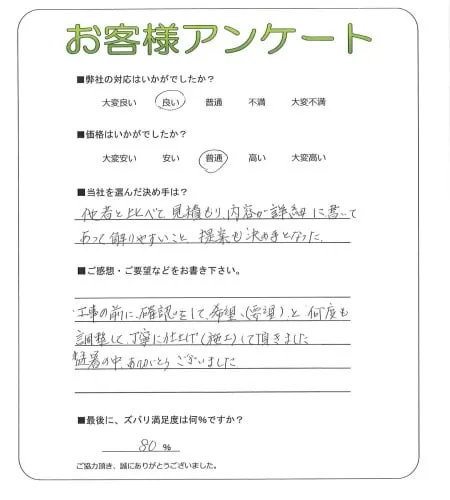 お客様アンケート
■弊社の対応はいかがでしたか？
大変良い 良い 普通 不満 大変不満
■価格はいかがでしたか？
大変安い 安い 普通 高い 大変高い
■当社を選んだ決め手は？
他者と比べて、見積もり、内容が詳細に書いて
あって解りやすいこと 提案も決め手となった
■ご感想・ご要望などをお書き下さい。
工事の前に、確認をして、希望、(要望)、と 何度も
調整して、丁寧に仕上げ(施工)して頂きました
猛暑の中、ありがとうございました
■最後に、ズバリ満足度は何%ですか？
80 %
ご協力頂き、誠にありがとうございました。